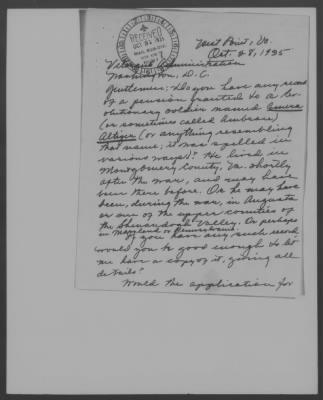 West Point, Va.
Oct. 28, 1935
RECEIVED
Veterans Administration
Washington, D.C.
Gentlemen: Do you have any record
of a pension granted to a Rev-
olutionary soldier named
(or sometimes called
(or anything resembling
that name; it was spelled in
various ways)? He lived in
Montgomery County, Va. shortly
after the war, and may have
been there before. Or he may have
been, during the war, in Augusta
or one of the upper counties of
the Shenandoah Valley. Or perhaps
in Maryland or Pennsylvania.
If you have any such record
would you be good enough to let
me have a copy of it, giving all
details?
Would the application for